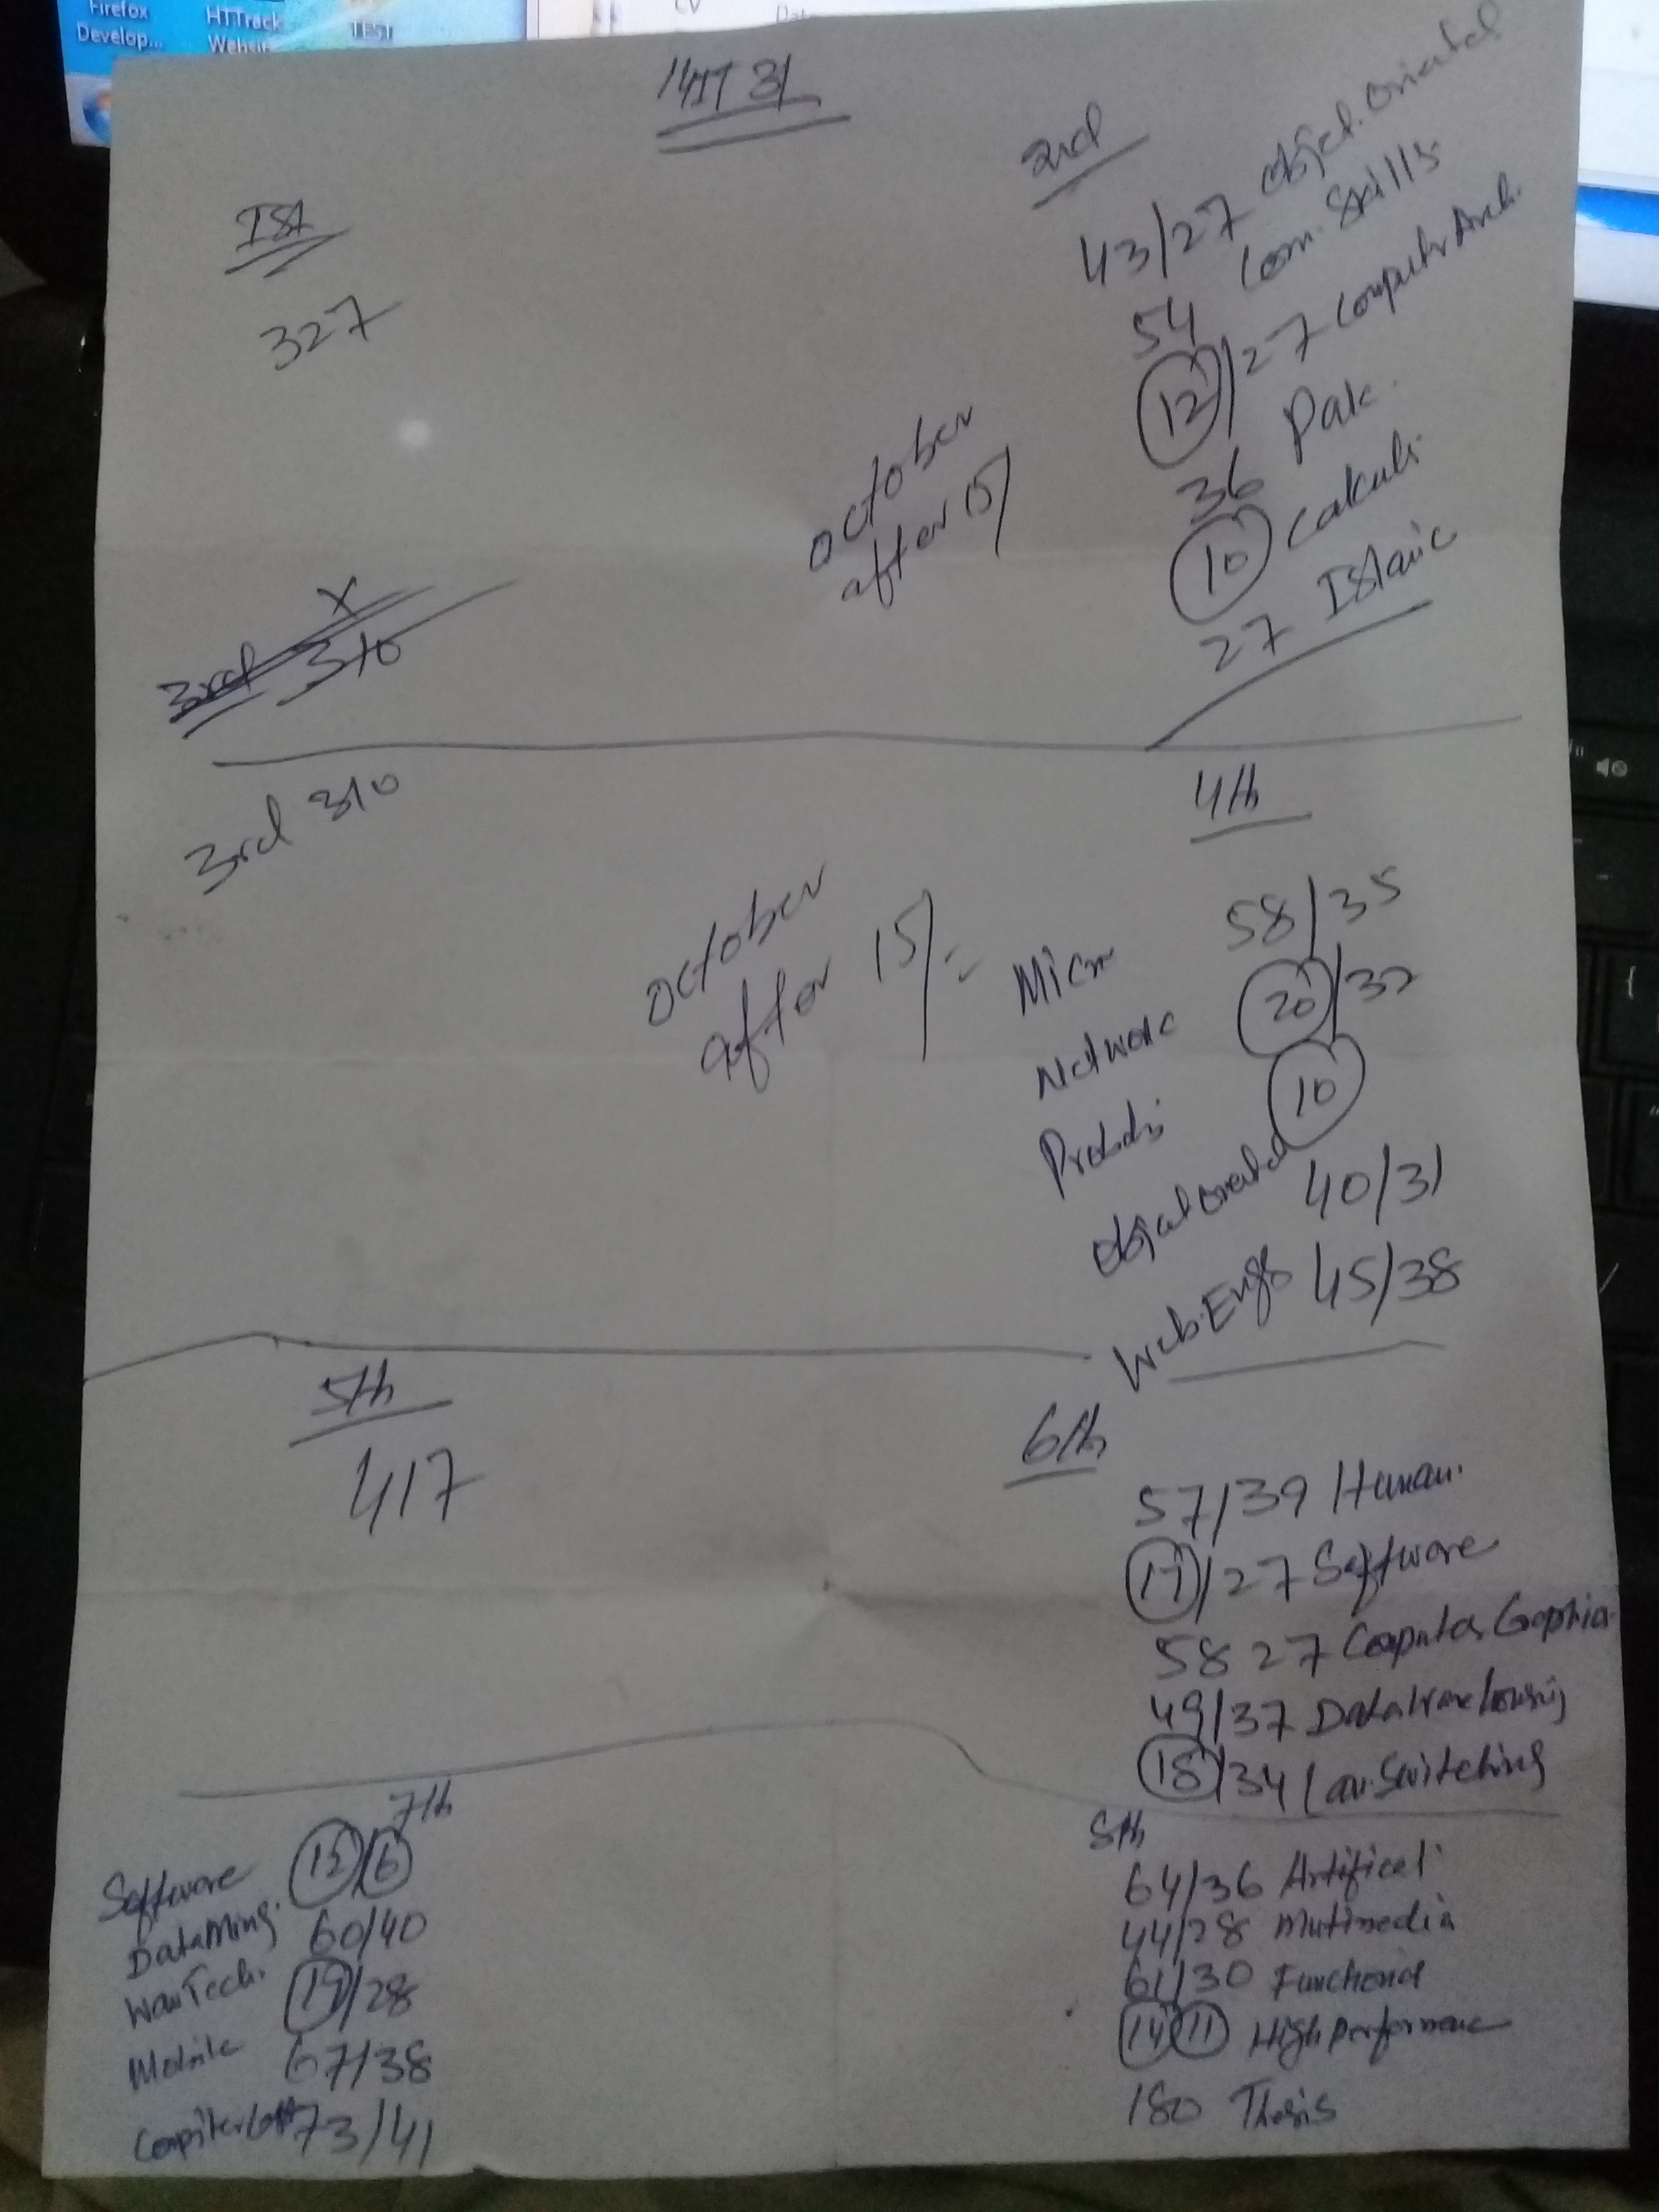 Firefox
Develop...
HTTrack
Websit
TEST
CV
14IT 31
Ist
327
2nd
43/27 Object. Oriented
54 Com. Skills
12/27 Computer Arch.
36 Pak.
10 Calculi
27 Islamic
October
after 15/
3rd 310
X
3rd 310
October
after 15/=
4th
Micr 58/35
Network 20/32
Probabi 10
Object Oriented 40/31
Web. Engg 45/38
5th
417
6th
57/39 Human.
/27 Software
58 27 Computer Graphics
49/37 Data Ware housing
18/34 Lan. Switching
7th
Software 15/6
Data Ming. 60/40
Wan Tech. 19/28
Mobile 67/38
73/41
8th
64/36 Artifical
44/28 Mutimedia
61/30 Functional
14/11 High performance
180 Thesis